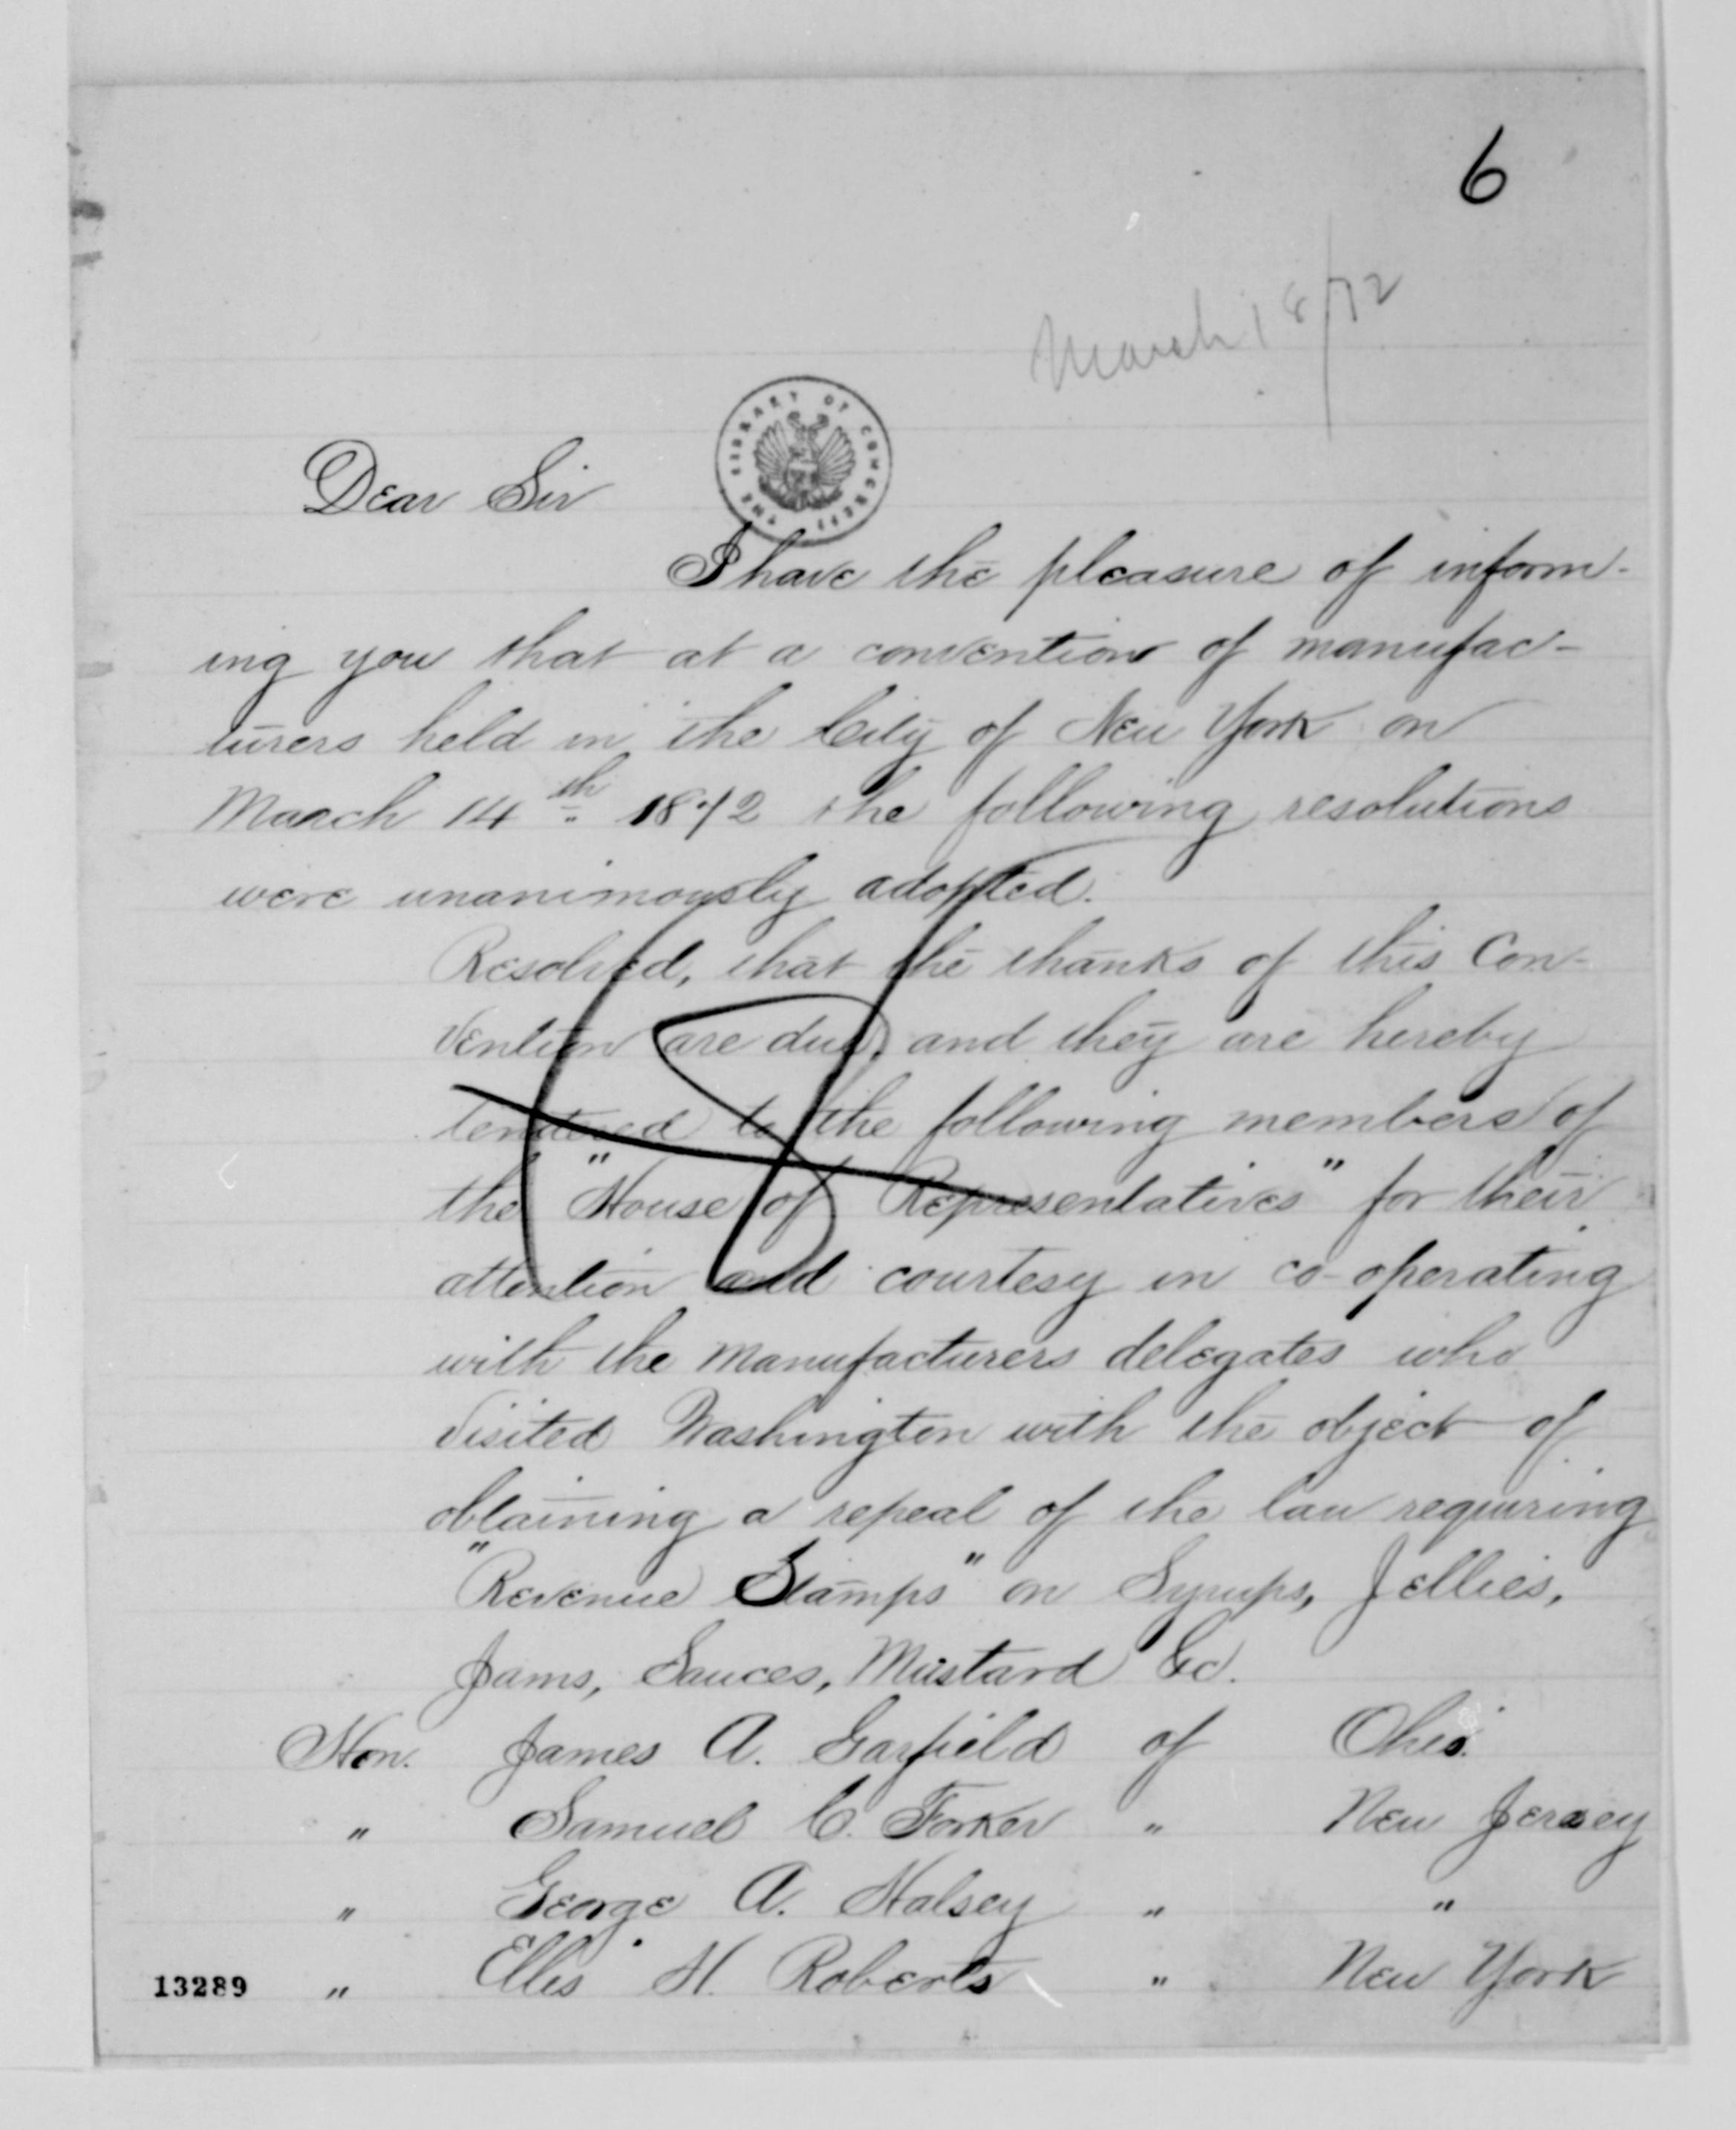 6
March 18/72
THE LIBRARY OF CONGRESS
Dear Sir
I have the pleasure of inform-
ing you that at a convention of manufac-
turers held in the City of New York on
March 14th 1872 the following resolutions
were unanimously adopted.
Resolved, that the thanks of this Con-
vention are due, and they are hereby
tendered to the following members of
the "House of Representatives" for their
attention and courtesy in co-operating
with the manufacturers delegates who
visited Washington with the object of
obtaining a repeal of the law requiring
"Revenue Stamps" on Syrups, Jellies,
Jams, Sauces, Mustard &c.
Hon. James A. Garfield of Ohio.
" Samuel C. Forker " New Jersey
" George A. Halsey " "
13289 " Ellis H. Roberts " New York